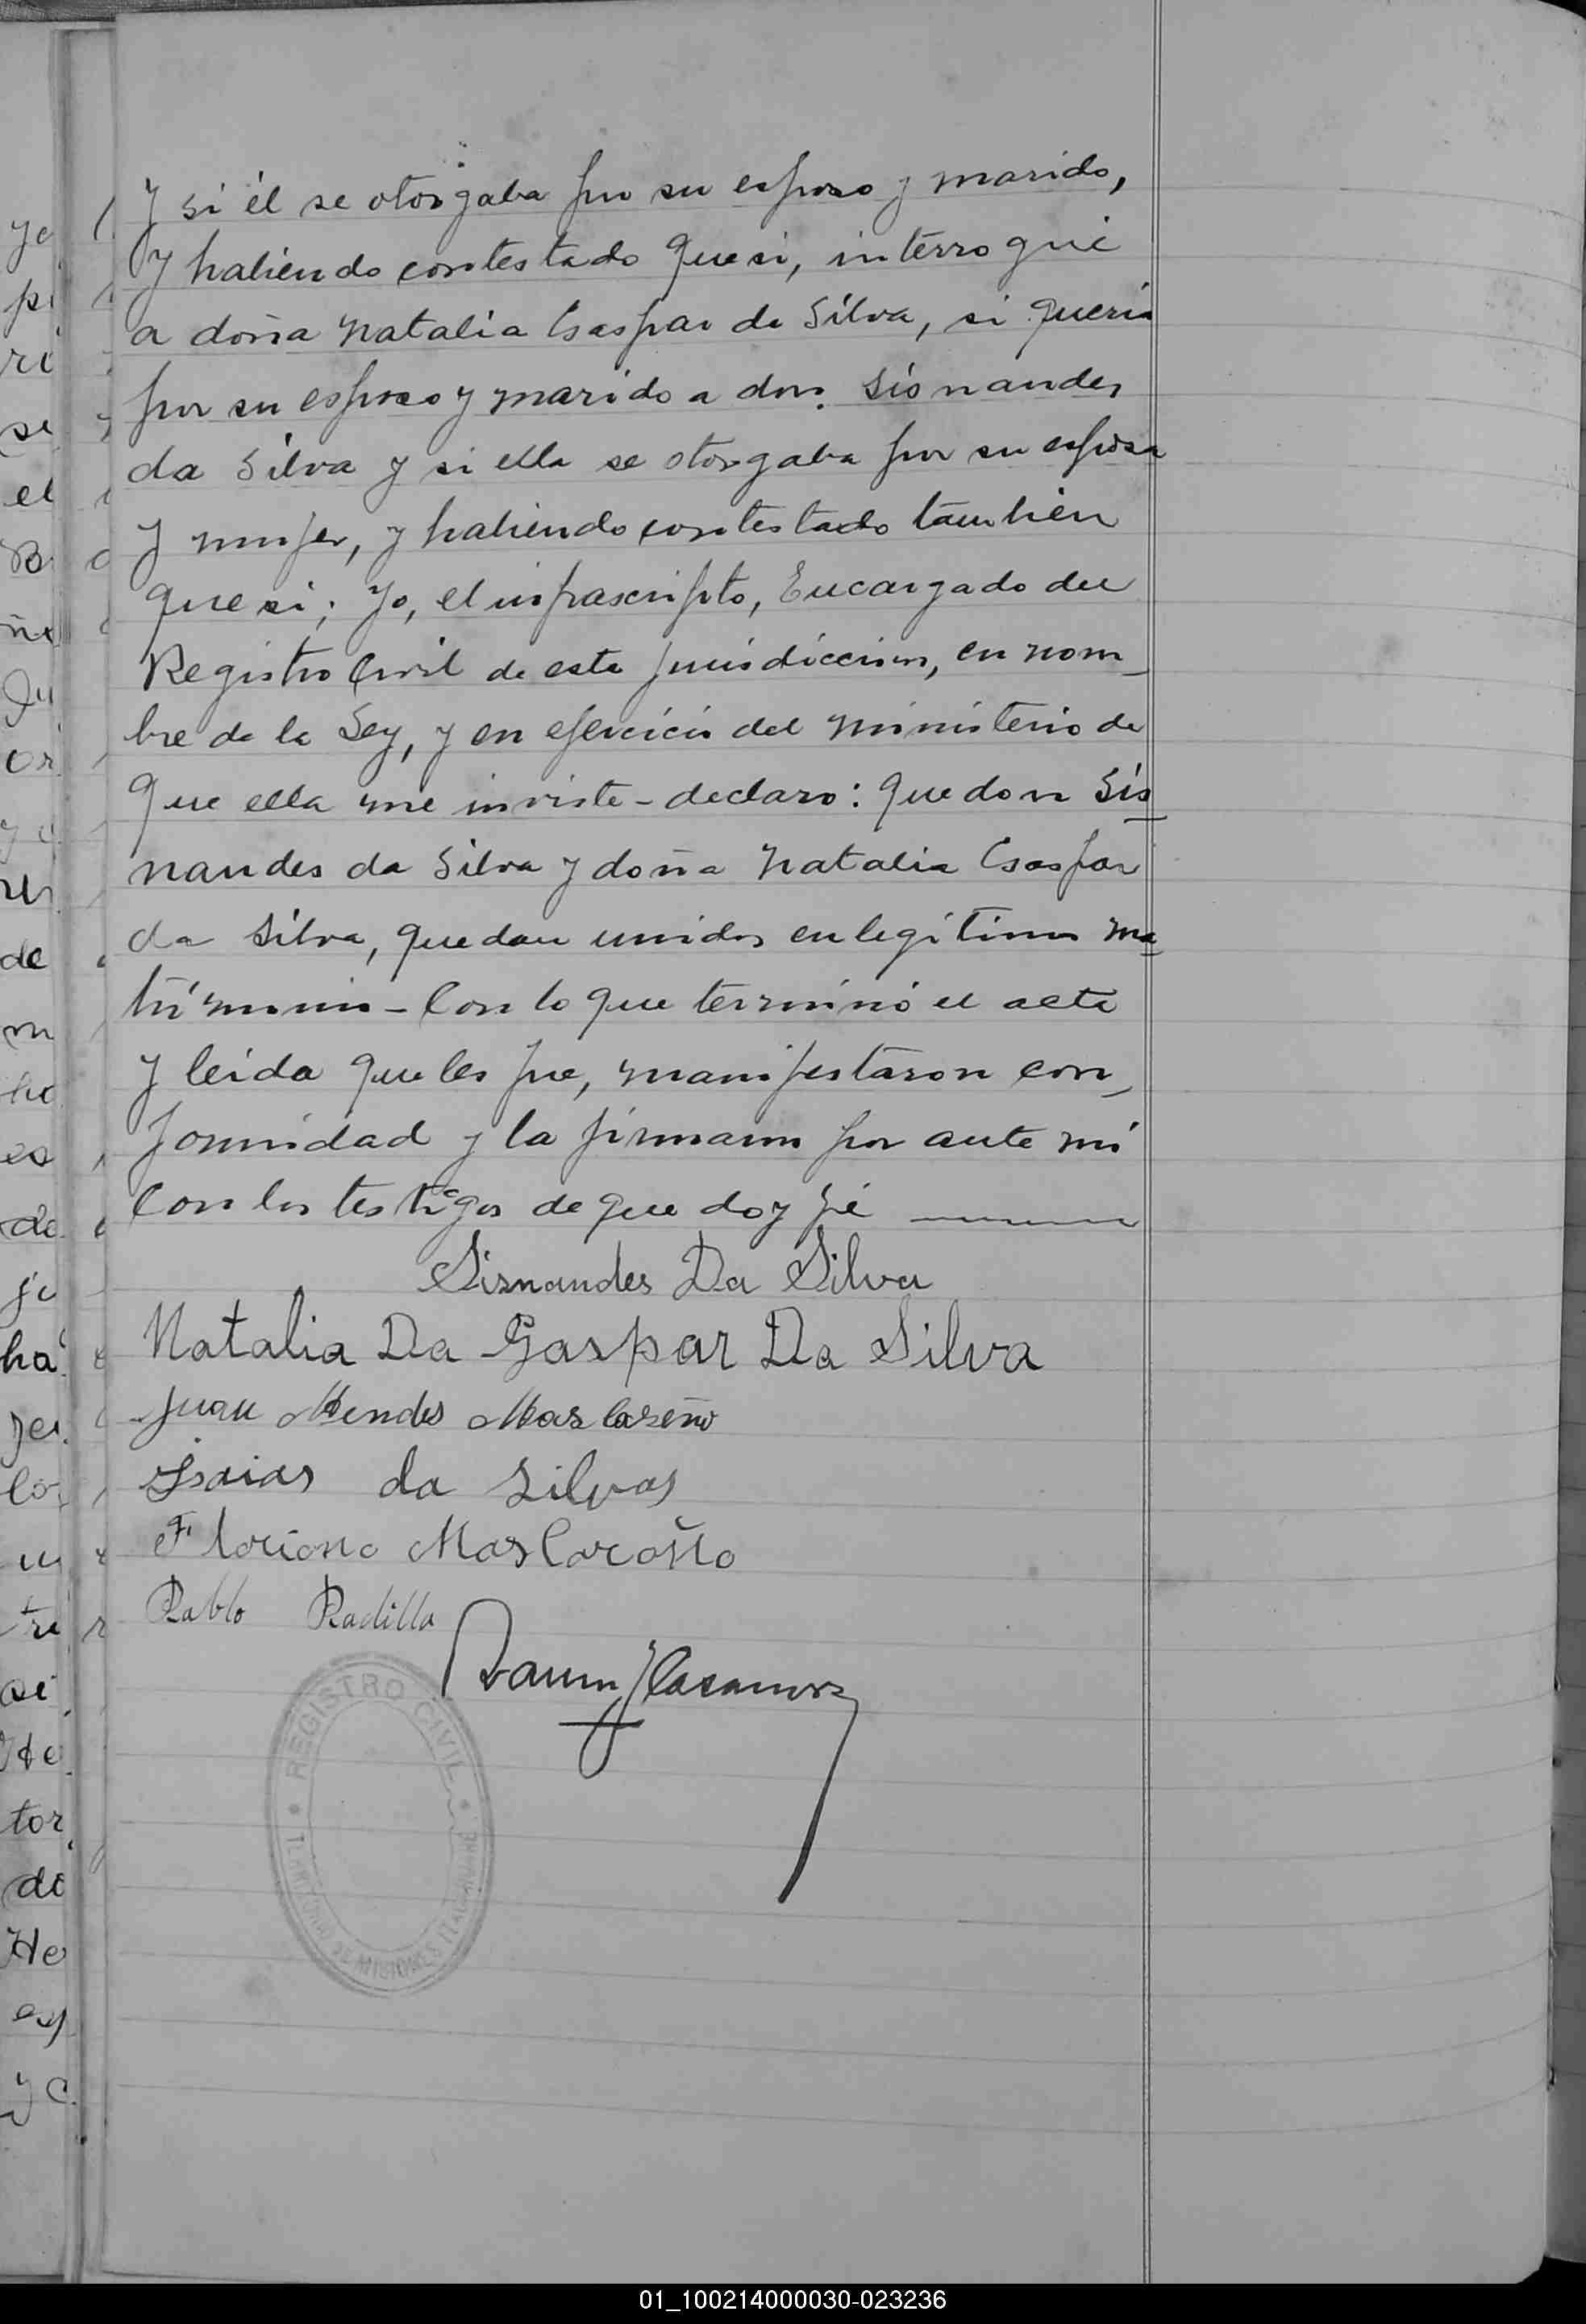 y si él se otorgaba por su esposo y marido,
y habiendo contestado que si, interrogué
a doña Natalia Gaspar da Silva, si queria
por su esposo y marido a don. Sisnandes
da Silva y si ella se otorgaba por su esposa
y mujer, y habiendo contestado tambien
que si; Yo, el infrascripto, Encargado del
Registro Civil de esta jurisdiccion, en nom_
bre de la Ley, y en ejercicio del ministerio de
que ella me inviste - declaro: que don Sis
nandes da Silva y doña Natalia Gaspar
da Silva, quedan unidos en legitimo ma
trimonio - Con lo que terminó el acta
y leida que les fue, manifestaron con_
formidad y la firmaron por ante mi
con los testigos de que doy fé
Sisnandes Da Silva
Natalia Da Gaspar Da Silva
Juan Mendes Mascareño
Isaias da Silva
Floriano Mascareño
Pablo Padilla
REGISTRO CIVIL
MISIONES
01_100214000030-023236